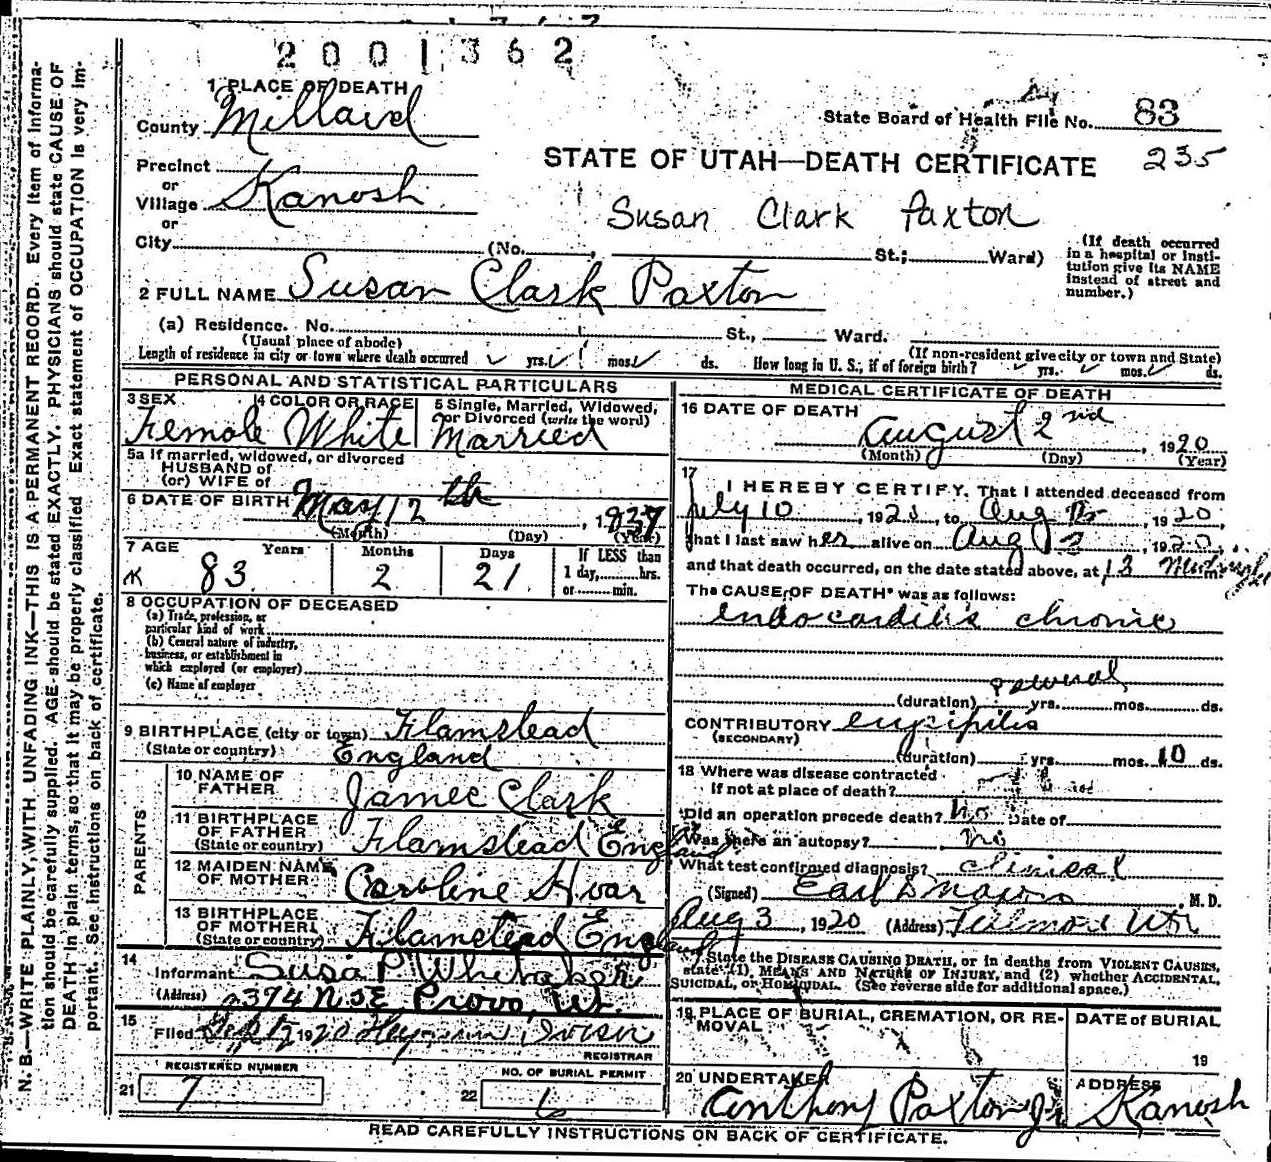 2001362
1 PLACE OF DEATH
County Millard
State Board of Health File No. 83
235
STATE OF UTAH—DEATH CERTIFICATE
Precinct
or
Village Kanosh
or
Susan Clark Paxton
City (No. , St.; Ward)
(If death occurred
in a hospital or insti-
tution give its NAME
instead of street and
number.)
2 FULL NAME Susan Clark Paxton
(a) Residence. No. St., Ward.
(Usual place of abode)
(If non-resident give city or town and State)
Length of residence in city or town where death occurred yrs. mos. ds. How long in U. S., if of foreign birth? yrs. mos. ds.
PERSONAL AND STATISTICAL PARTICULARS
3 SEX
Female
4 COLOR OR RACE
White
5 Single, Married, Widowed,
or Divorced (write the word)
Married
5a If married, widowed, or divorced
HUSBAND of
(or) WIFE of
6 DATE OF BIRTH May 12th , 1837
(Month) (Day) (Year)
7 AGE Years Months Days If LESS than
1 day, hrs.
or min.
83 2 21
8 OCCUPATION OF DECEASED
(a) Trade, profession, or
particular kind of work
(b) General nature of industry,
business, or establishment in
which employed (or employer)
(c) Name of employer
9 BIRTHPLACE (city or town) Flamstead
(State or country) England
PARENTS
10 NAME OF
FATHER James Clark
11 BIRTHPLACE
OF FATHER
(State or country) Flamstead England
12 MAIDEN NAME
OF MOTHER Caroline
13 BIRTHPLACE
OF MOTHER
(State or country) Flamstead England
14
Informant Susa P Whitaker
(Address) 374 N 5 E Provo, Ut.
15
Filed 1920
REGISTRAR
REGISTERED NUMBER
21 7
NO. OF BURIAL PERMIT
22 6
MEDICAL CERTIFICATE OF DEATH
16 DATE OF DEATH
August 2nd , 1920
(Month) (Day) (Year)
17
I HEREBY CERTIFY, That I attended deceased from
July 10 , 1920, to Aug , 1920,
that I last saw her alive on Aug , 1920,
and that death occurred, on the date stated above, at m.
The CAUSE OF DEATH* was as follows:
endocarditis chronic
several
(duration) yrs. mos. ds.
CONTRIBUTORY
(SECONDARY)
(duration) yrs. mos. 10 ds.
18 Where was disease contracted
if not at place of death?
Did an operation precede death? no Date of
Was there an autopsy? no
What test confirmed diagnosis? clinical
(Signed) Earl , M. D.
Aug 3 , 1920 (Address)
* State the DISEASE CAUSING DEATH, or in deaths from VIOLENT CAUSES,
state (1), MEANS AND NATURE OF INJURY, and (2) whether ACCIDENTAL,
SUICIDAL, or HOMICIDAL. (See reverse side for additional space.)
19 PLACE OF BURIAL, CREMATION, OR RE-
MOVAL
DATE of BURIAL
19
20 UNDERTAKER
Anthony Paxton Jr
ADDRESS
Kanosh
READ CAREFULLY INSTRUCTIONS ON BACK OF CERTIFICATE.
N. B.—WRITE PLAINLY, WITH UNFADING INK—THIS IS A PERMANENT RECORD. Every item of informa-
tion should be carefully supplied. AGE should be stated EXACTLY. PHYSICIANS should state CAUSE OF
DEATH in plain terms, so that it may be properly classified. Exact statement of OCCUPATION is very im-
portant. See instructions on back of certificate.